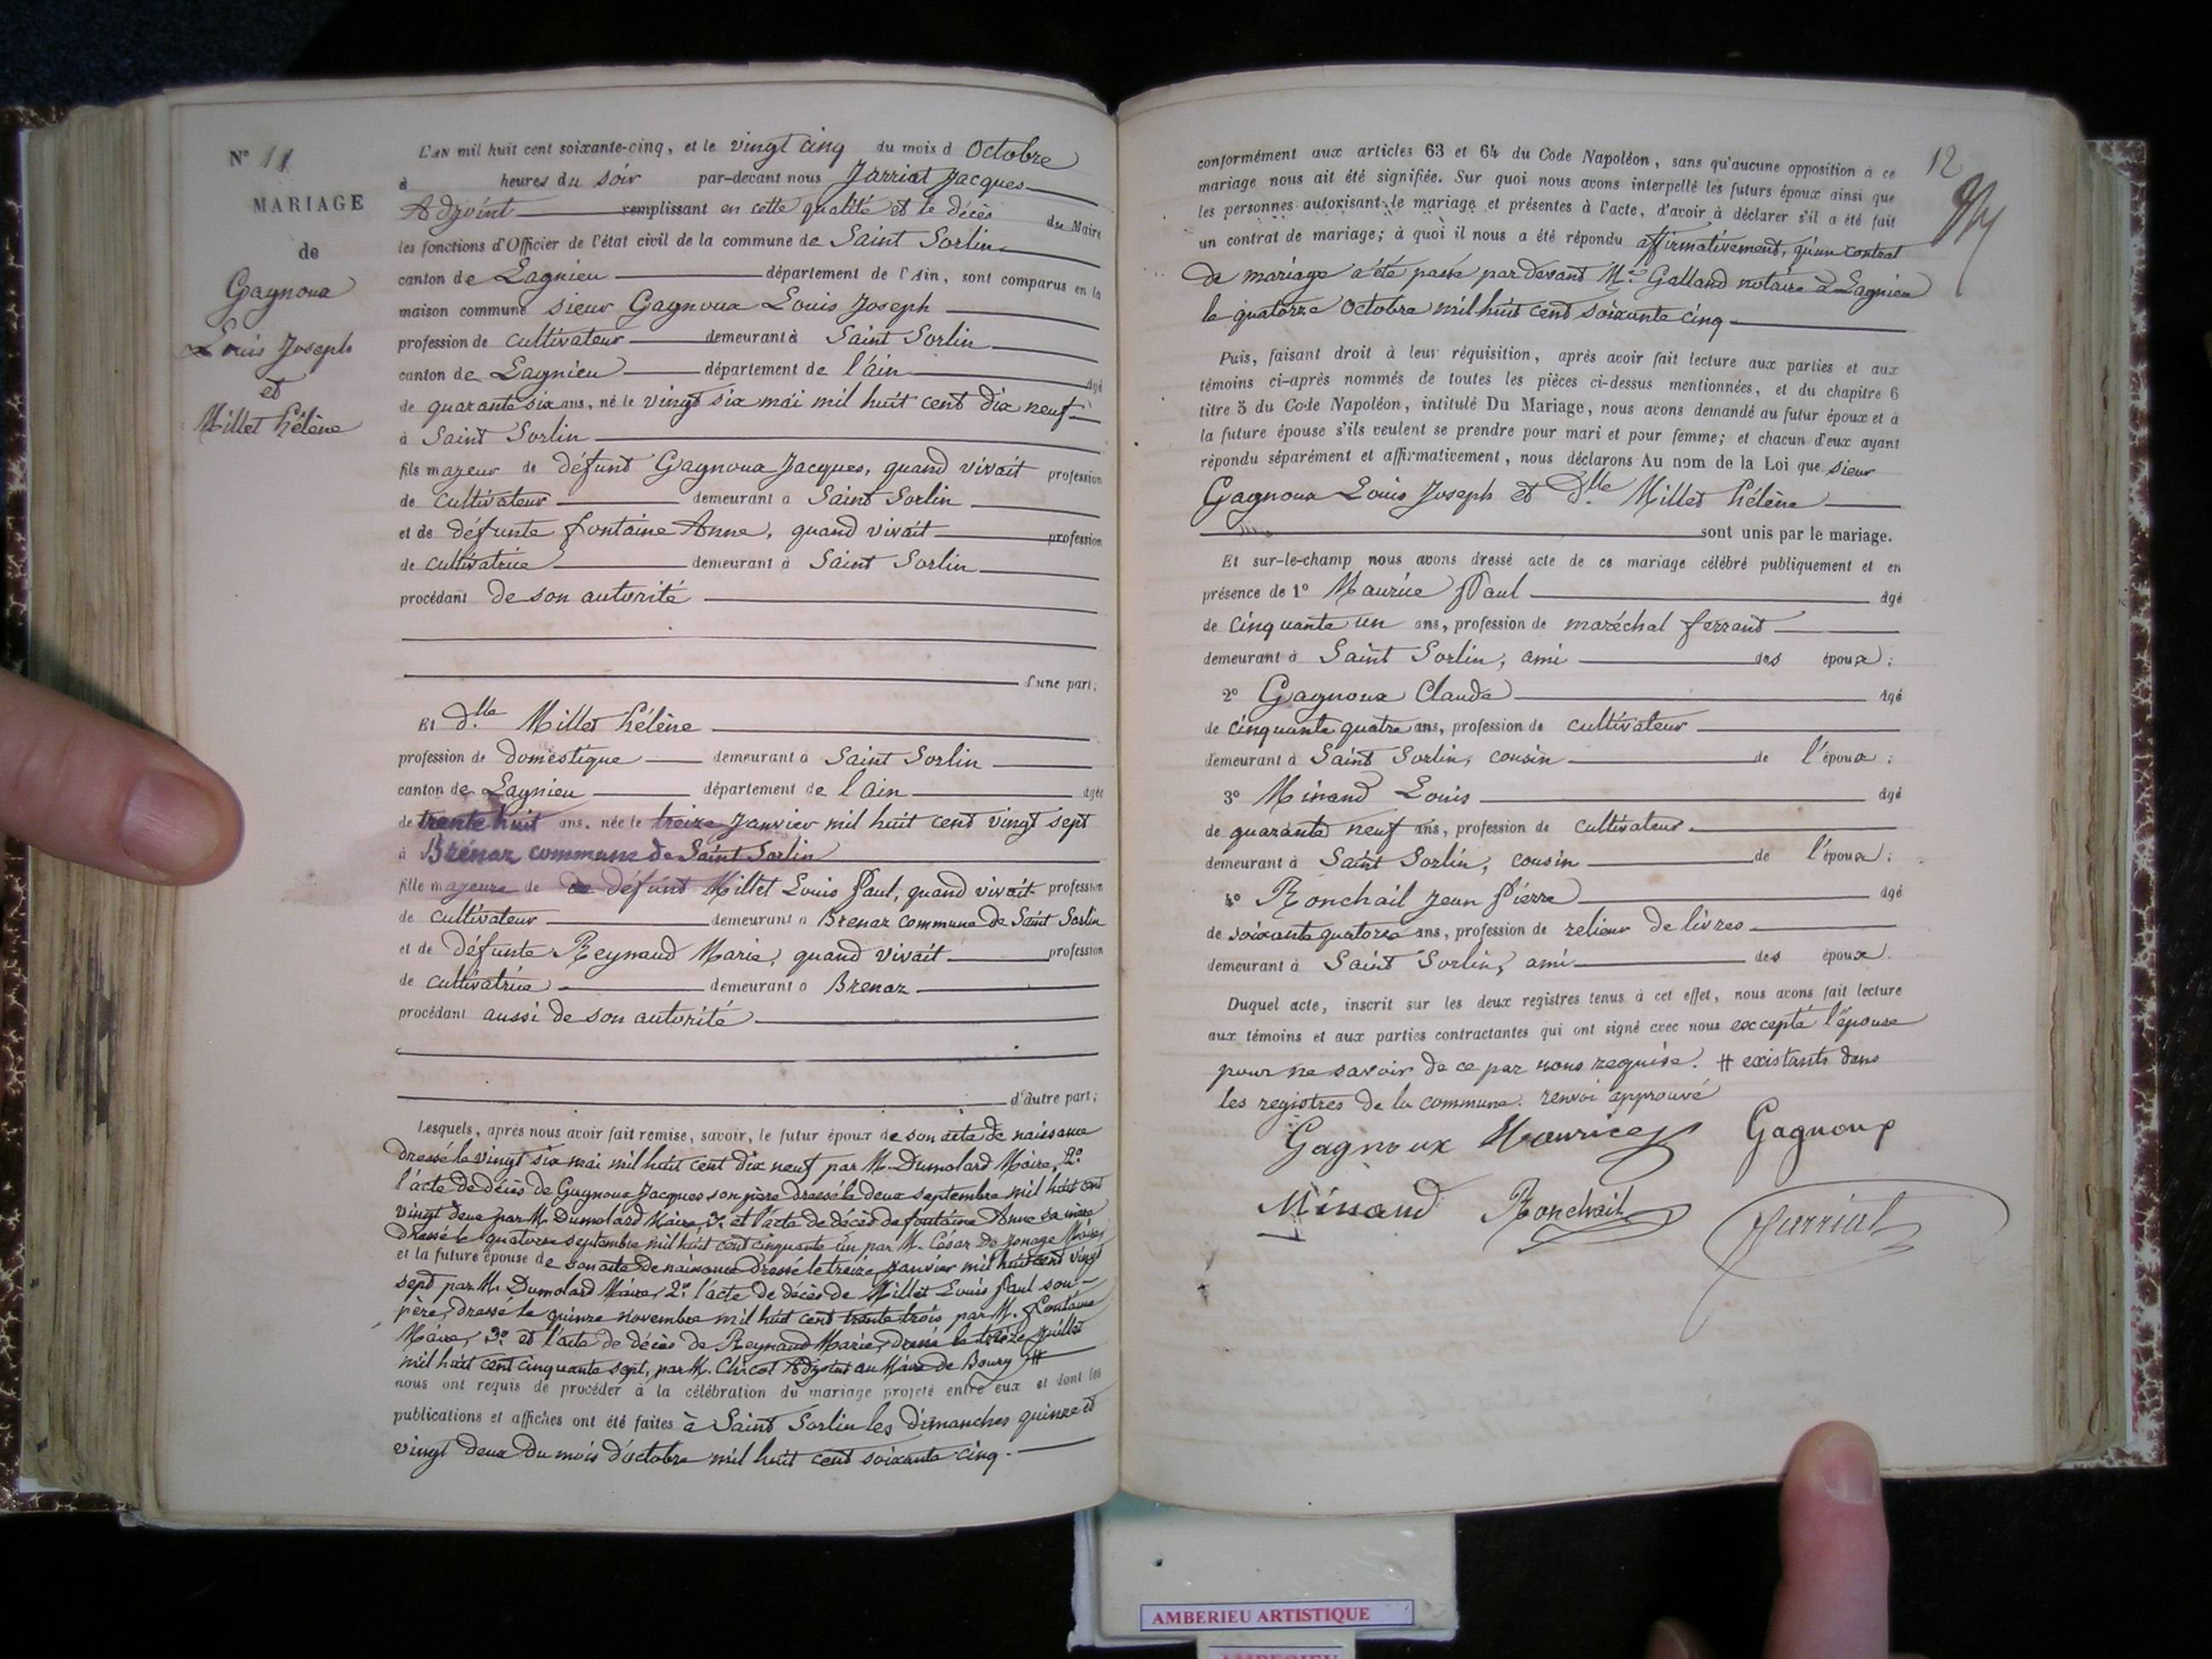 N° 11
MARIAGE
de
Gagnoux
Louis Joseph
et
Millet hélène
L'AN mil huit cent soixante-cinq, et le vingt cinq du mois d Octobre
à heures du soir par-devant nous Jarriat Jacques
Adjoint remplissant en cette qualité et le décès du Maire
les fonctions d'Officier de l'état civil de la commune de Saint Sorlin
canton de Lagnieu département de l'Ain, sont comparus en la
maison commune sieur Gagnoux Louis Joseph
profession de cultivateur demeurant à Saint Sorlin
canton de Lagnieu département de l'ain âgé
de quarante six ans, né le vingt six mai mil huit cent dix neuf
à Saint Sorlin
fils majeur de défunt Gagnoux Jacques, quand vivait profession
de cultivateur demeurant à Saint Sorlin
et de défunte fontaine Anne, quand vivait profession
de cultivatrice demeurant à Saint Sorlin
procédant de son autorité
d'une part;
Et dlle Millet hélène
profession de domestique demeurant à Saint Sorlin
canton de Lagnieu département de l'ain âgée
de trente huit ans, née le treize Janvier mil huit cent vingt sept
à Brénaz commune de Saint Sorlin
fille majeure de de défunt Millet Louis Paul, quand vivait profession
de cultivateur demeurant à Brenaz commune de Saint Sorlin
et de défunte Reynaud Marie, quand vivait profession
de cultivatrice demeurant à Brenaz
procédant aussi de son autorité
d'autre part;
Lesquels, après nous avoir fait remise, savoir, le futur époux de son acte de naissance
dressé le vingt six mai mil huit cent dix neuf par M. Dumolard Maire, 2°
l'acte de décès de Gagnoux Jacques son père dressé le deux septembre mil huit cent
vingt deux par M. Dumolard Maire, 3° et l'acte de décès de fontaine Anne sa mère
dressé le quatorze septembre mil huit cent cinquante un par M. César de Jonage Maire,
et la future épouse de son acte de naissance dressé le treize janvier mil huit cent vingt
sept par M. Dumolard Maire, 2° l'acte de décès de Millet Louis Paul son
père, dressé le quinze novembre mil huit cent trente trois par M. fontaine
Maire, 3° et l'acte de décès de Reynaud Marie, dressé le treize juillet
mil huit cent cinquante sept, par M. Chicot Adjoint au Maire de Bourg #
nous ont requis de procéder à la célébration du mariage projeté entre eux et dont les
publications et affiches ont été faites à Saint Sorlin les dimanches quinze et
vingt deux du mois d'octobre mil huit cent soixante cinq.
12
conformément aux articles 63 et 64 du Code Napoléon, sans qu'aucune opposition à ce
mariage nous ait été signifiée. Sur quoi nous avons interpellé les futurs époux ainsi que
les personnes autorisant le mariage et présentes à l'acte, d'avoir à déclarer s'il a été fait
un contrat de mariage; à quoi il nous a été répondu affirmativement, qu'un contrat
de mariage a été passé par devant Me Galland notaire à Lagnieu
le quatorze Octobre mil huit cent soixante cinq
Puis, faisant droit à leur réquisition, après avoir fait lecture aux parties et aux
témoins ci-après nommés de toutes les pièces ci-dessus mentionnées, et du chapitre 6
titre 5 du Code Napoléon, intitulé Du Mariage, nous avons demandé au futur époux et à
la future épouse s'ils veulent se prendre pour mari et pour femme; et chacun d'eux ayant
répondu séparément et affirmativement, nous déclarons Au nom de la Loi que sieur
Gagnoux Louis Joseph et Dlle Millet hélène
sont unis par le mariage.
Et sur-le-champ nous avons dressé acte de ce mariage célébré publiquement et en
présence de 1° Maurice Paul âgé
de cinquante un ans, profession de maréchal ferrant
demeurant à Saint Sorlin, ami des époux;
2° Gagnoux Claude âgé
de cinquante quatre ans, profession de cultivateur
demeurant à Saint Sorlin, cousin de l'époux;
3° Minand Louis âgé
de quarante neuf ans, profession de cultivateur
demeurant à Saint Sorlin, cousin de l'époux;
4° Ronchail Jean Pierre âgé
de soixante quatorze ans, profession de relieur de livres
demeurant à Saint Sorlin, ami des époux.
Duquel acte, inscrit sur les deux registres tenus à cet effet, nous avons fait lecture
aux témoins et aux parties contractantes qui ont signé avec nous excepté l'épouse
pour ne savoir de ce par nous requise. # existants dans
les registres de la commune. renvoi approuvé
Gagnoux Maurice Gagnoux
Minand Ronchail Jarriat
AMBERIEU ARTISTIQUE
AMBERIEU